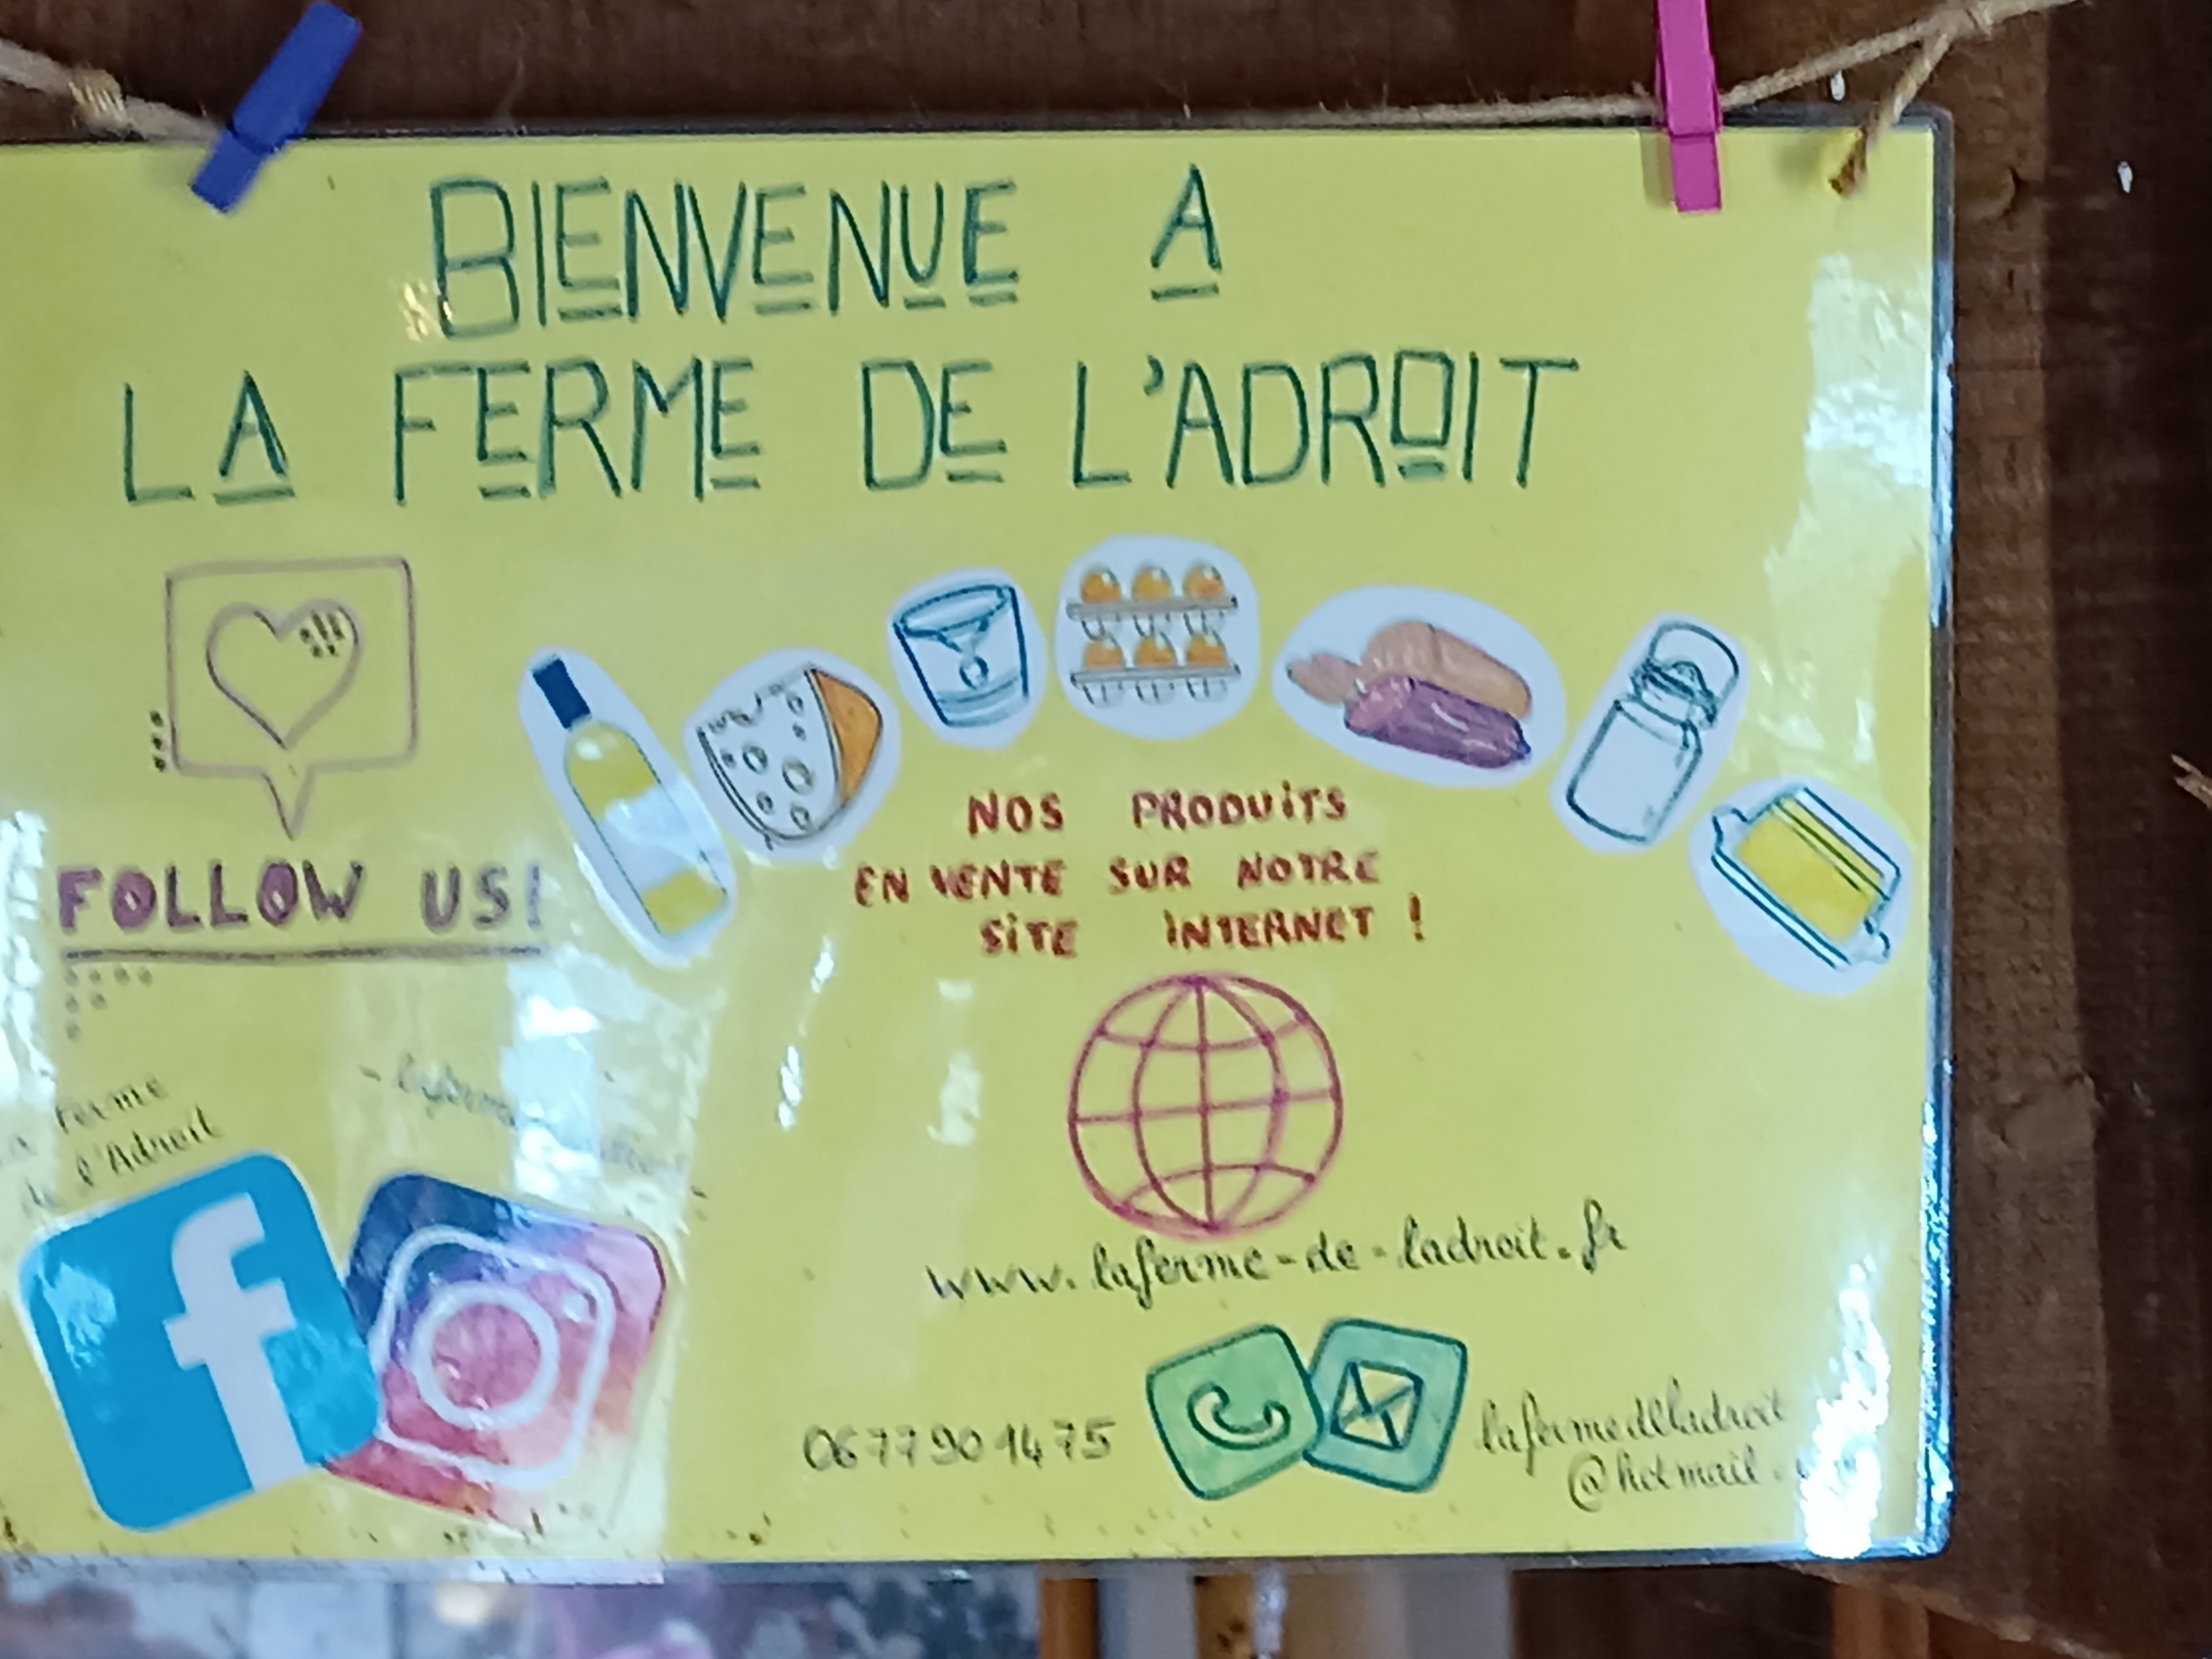 BIENVENUE A
LA FERME DE L'ADROIT
FOLLOW US!
NOS PRODUITS
EN VENTE SUR NOTRE
SITE INTERNET !
ferme
de l'Adroit
f
www.laferme-de-ladroit.fr
06 77 90 14 75
lafermedeladroit
@hotmail.